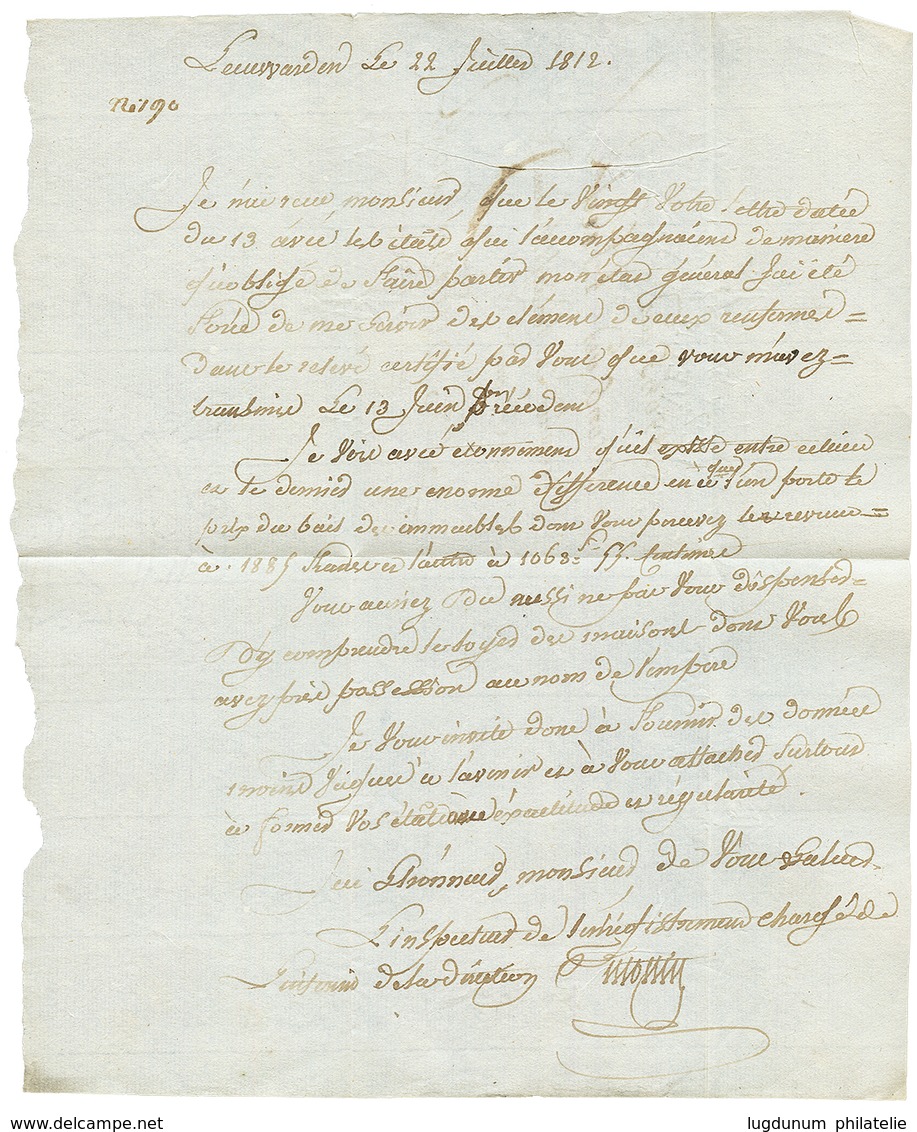 Leeuwarden Le 22 Juillet 1812.
No. 190
Je n'ai reçu, monsieur, que le Vingt Votre lettre datée
du 13 avec les états qui l'accompagnaient de maniere
qu'obligé de faire partir mon état général j'ai été
forcé de me servir des élémens de ceux renfermés =
dans le relevé certifié par Vous que vous m'avez =
transmis Le 13 Juin précédent
Je Vois avec étonnement qu'il existe entre celui ci
et le dernier une enorme difference en ce que l'un porte le
prix du bail des immeubles dont Vous percevez les revenus =
à 1885 francs et l'autre à 1068 f 55 centimes
Vous auriez Du aussi ne pas Vous dispenser =
D'y comprendre le loyer des maisons dont Vous
avez pris possession au nom de l'empire
Je Vous invite donc à fournir des données
moins vagues à l'avenir et à Vous attacher surtout
à former Vos états avec exactitude et régularité.
J'ai L'honneur, monsieur, de Vous saluer
L'inspecteur de l'enregistrement chargé de
L'interim de la direction
lugdunum philatelie